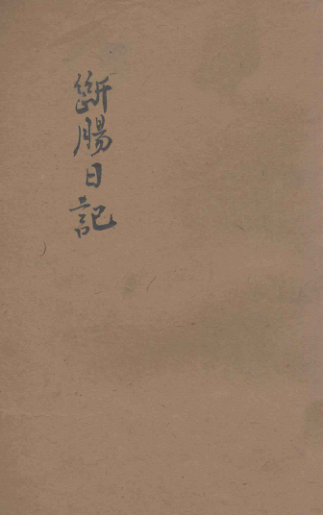 斷腸日記